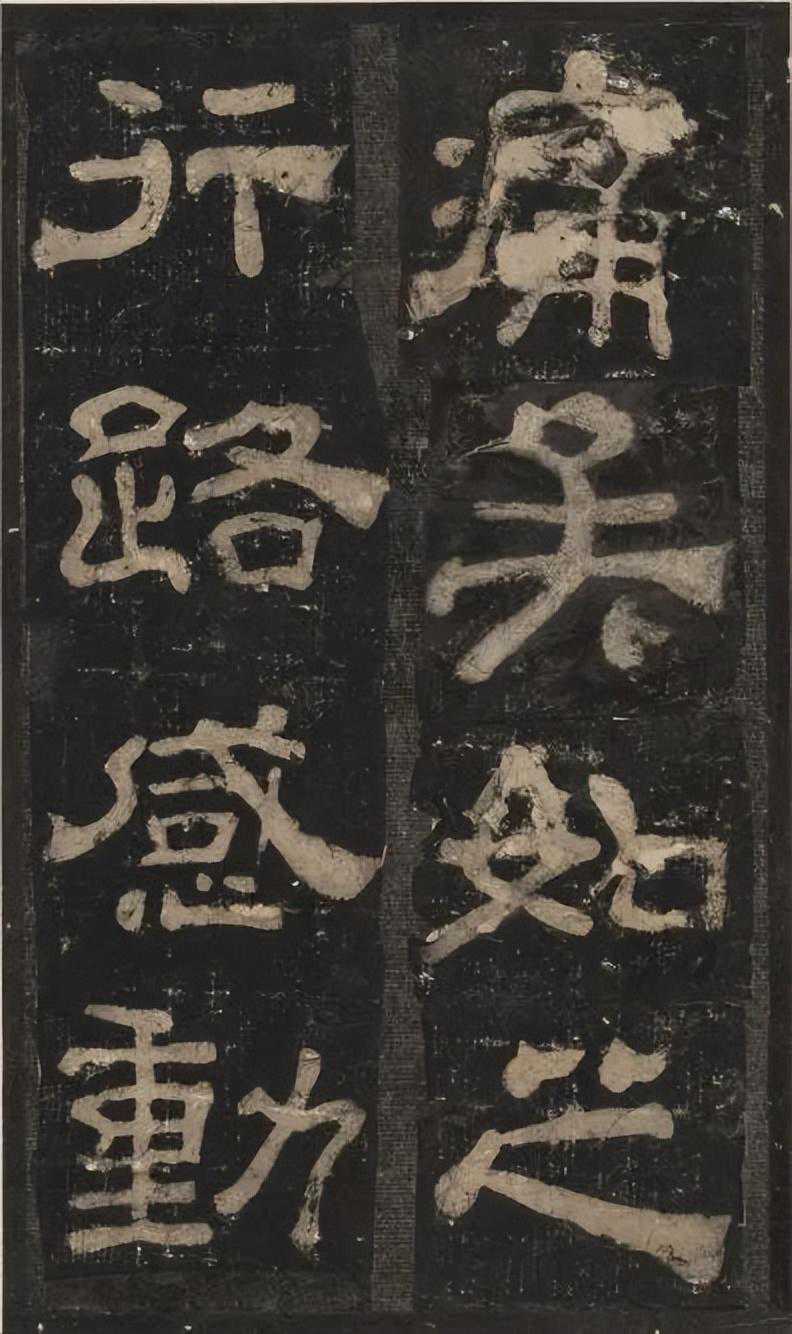 痛矣如之
行路感動